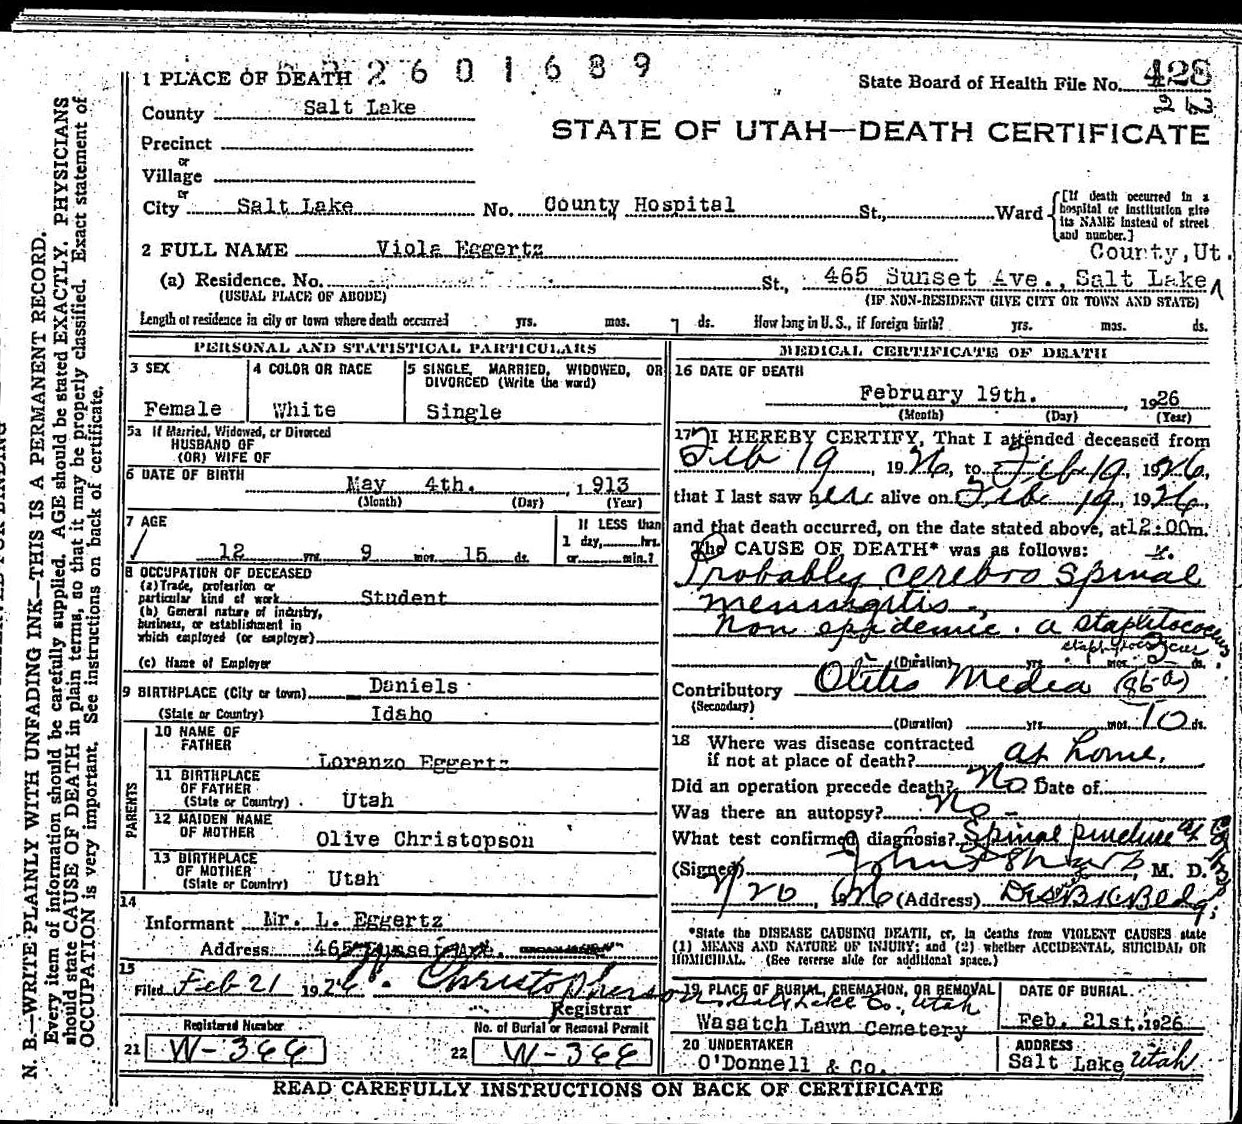 2601689
1 PLACE OF DEATH
State Board of Health File No. 428
County Salt Lake
STATE OF UTAH—DEATH CERTIFICATE
Precinct
or
Village
or
City Salt Lake No. County Hospital St., Ward
[If death occurred in a
hospital or institution give
its NAME instead of street
and number.]
2 FULL NAME Viola Eggertz
County, Ut.
(a) Residence. No. St., 465 Sunset Ave., Salt Lake
(USUAL PLACE OF ABODE) (IF NON-RESIDENT GIVE CITY OR TOWN AND STATE)
Length of residence in city or town where death occurred yrs. mos. 7 ds. How long in U. S., if foreign birth? yrs. mos. ds.
PERSONAL AND STATISTICAL PARTICULARS
3 SEX
Female
4 COLOR OR RACE
White
5 SINGLE, MARRIED, WIDOWED, OR
DIVORCED (Write the word)
Single
5a If Married, Widowed, or Divorced
HUSBAND OF
(OR) WIFE OF
6 DATE OF BIRTH
May 4th. , 1913
(Month) (Day) (Year)
7 AGE
12 yrs. 9 mos. 15 ds.
If LESS than
1 day, hrs.
or min.?
8 OCCUPATION OF DECEASED
(a) Trade, profession or
particular kind of work Student
(b) General nature of industry,
business, or establishment in
which employed (or employer)
(c) Name of Employer
9 BIRTHPLACE (City or town) Daniels
(State or Country) Idaho
PARENTS
10 NAME OF
FATHER
Loranzo Eggertz
11 BIRTHPLACE
OF FATHER
(State or Country) Utah
12 MAIDEN NAME
OF MOTHER
Olive Christopson
13 BIRTHPLACE
OF MOTHER
(State or Country) Utah
14
Informant Mr. L. Eggertz
Address 465 Sunset Ave.
15
Filed Feb 21 1926 Christopherson
Registrar
Registered Number
21 W-366
No. of Burial or Removal Permit
22 W-366
MEDICAL CERTIFICATE OF DEATH
16 DATE OF DEATH
February 19th. , 1926
(Month) (Day) (Year)
17 I HEREBY CERTIFY, That I attended deceased from
Feb 19, 1926, to Feb 19, 1926,
that I last saw her alive on Feb 19, 1926,
and that death occurred, on the date stated above, at 12:00 m.
The CAUSE OF DEATH* was as follows:
Probably cerebro spinal
meningitis
non epidemic. a staplitococcus
staphylococcus
(Duration) yrs. mos. 2 ds.
Contributory Otitis Media (86-a)
(Secondary)
(Duration) yrs. mos. 10 ds.
18 Where was disease contracted
if not at place of death? at home.
Did an operation precede death? No Date of
Was there an autopsy? No
What test confirmed diagnosis? Spinal puncture at
(Signed) John F Sharp, M. D.
2/20, 1926 (Address) Des Bk Bldg
*State the DISEASE CAUSING DEATH, or, in deaths from VIOLENT CAUSES state
(1) MEANS AND NATURE OF INJURY; and (2) whether ACCIDENTAL, SUICIDAL OR
HOMICIDAL. (See reverse side for additional space.)
19 PLACE OF BURIAL, CREMATION, OR REMOVAL
Salt Lake Co., Utah
Wasatch Lawn Cemetery
DATE OF BURIAL
Feb. 21st. 1926
20 UNDERTAKER
O'Donnell & Co.
ADDRESS
Salt Lake, Utah
READ CAREFULLY INSTRUCTIONS ON BACK OF CERTIFICATE
N. B.—WRITE PLAINLY WITH UNFADING INK—THIS IS A PERMANENT RECORD.
Every item of information should be carefully supplied. AGE should be stated EXACTLY. PHYSICIANS
should state CAUSE OF DEATH in plain terms, so that it may be properly classified. Exact statement of
OCCUPATION is very important. See instructions on back of certificate.